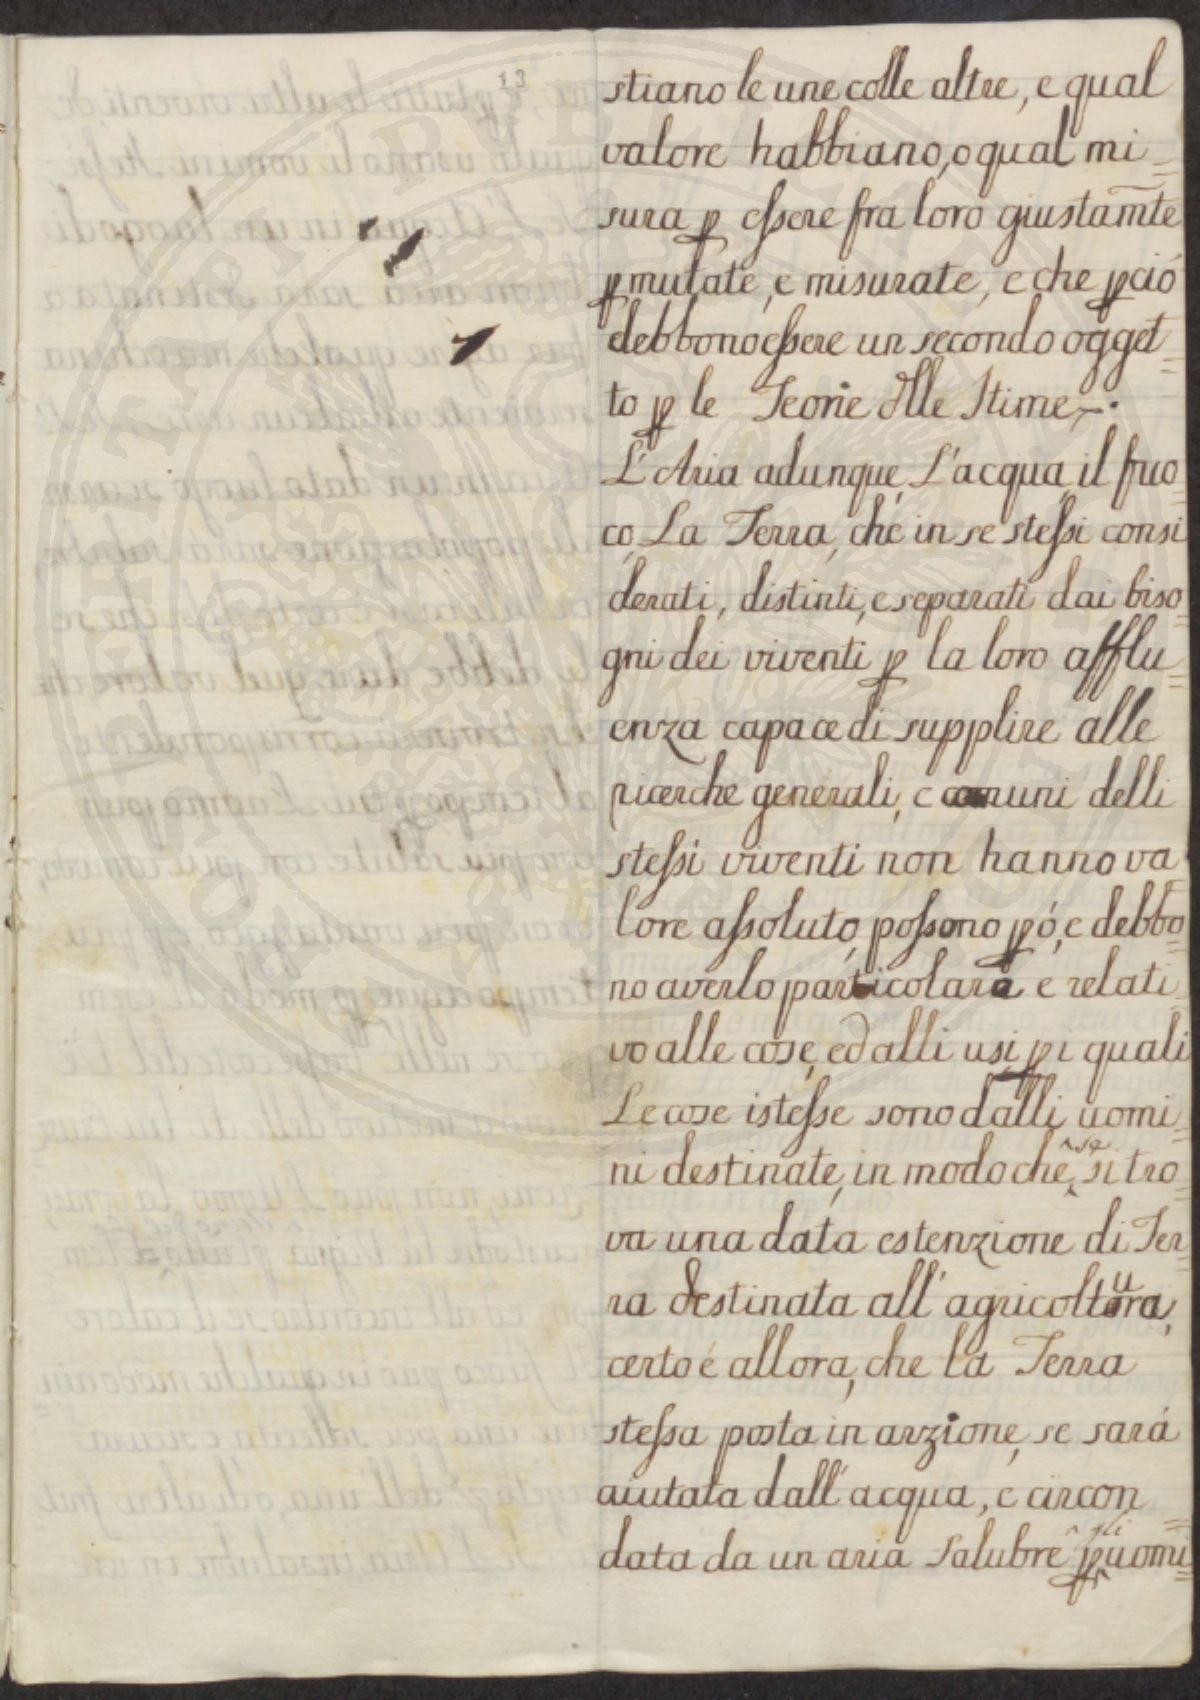 13
stiano le une colle altre, e qual
valore habbiano, o qual mi=
sura p essere fra loro giustamte
pmutate, e misurate, e che pció
debbono essere un secondo ogget=
to p le Teorie dlle Stime.
L'Aria adunque, L'acqua, il fuo
co, La Terra, che in se stessi consi
derati, distinti, e separati dai biso
gni dei viventi p la loro afflu=
enza capace di supplire alle
ricerche generali, e comuni delli
stessi viventi non hanno va
lore assoluto, possono pó, e debbo=
no averlo particolare e relati
vo alle cose, ed alli usi, p i quali
Le cose istesse sono dalli uomi=
ni destinate, in modo che, se si tro
va una data estenzione di Ter=
ra destinata all'agricoltura,
certo é allora, che la Terra
stessa posta in azzione, se sará
aiutata dall'acqua, e circon=
data da un aria salubre p gli uomi=